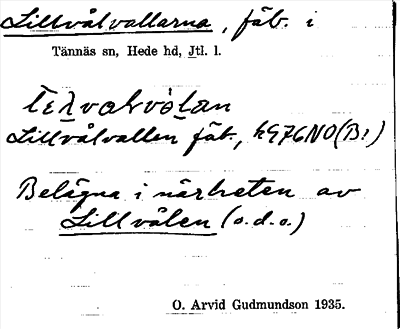 Lillvålvallarna, fäb. i
Tännäs sn, Hede hd, Jtl. l.
Lillvålvallen fäb., k976NO(B1)
Belägna i närheten av
Lillvålen (o.d.o.)
O. Arvid Gudmundson 1935.